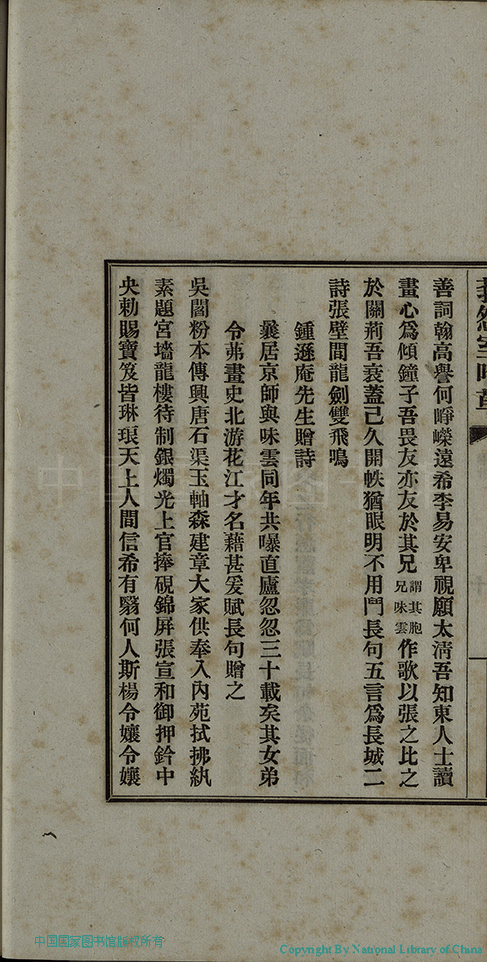 善詞翰高譽何崢嶸遠希李易安卑視顧太清吾知東人士讀
畫心爲傾鐘子吾畏友亦友於其兄謂其胞兄味雲作歌以張之比之
於關荊吾衰蓋已久開帙猶眼明不用鬥長句五言爲長城二
詩張壁間龍劍雙飛鳴
鍾遜庵先生贈詩
曩居京師與味雲同年共曝直廬忽忽三十載矣其女弟
令茀畫史北游花江才名藉甚爰賦長句贈之
吳閶粉本傳興唐石渠玉軸森建章大家供奉入內苑拭拂紈
素題宮墻龍樓待制銀燭光上官捧硯錦屏張宣和御押鈐中
央勅賜寶笈皆琳琅天上人間信希有翳何人斯楊令孃令孃
中国国家图书馆版权所有
Copyright By National Library of China